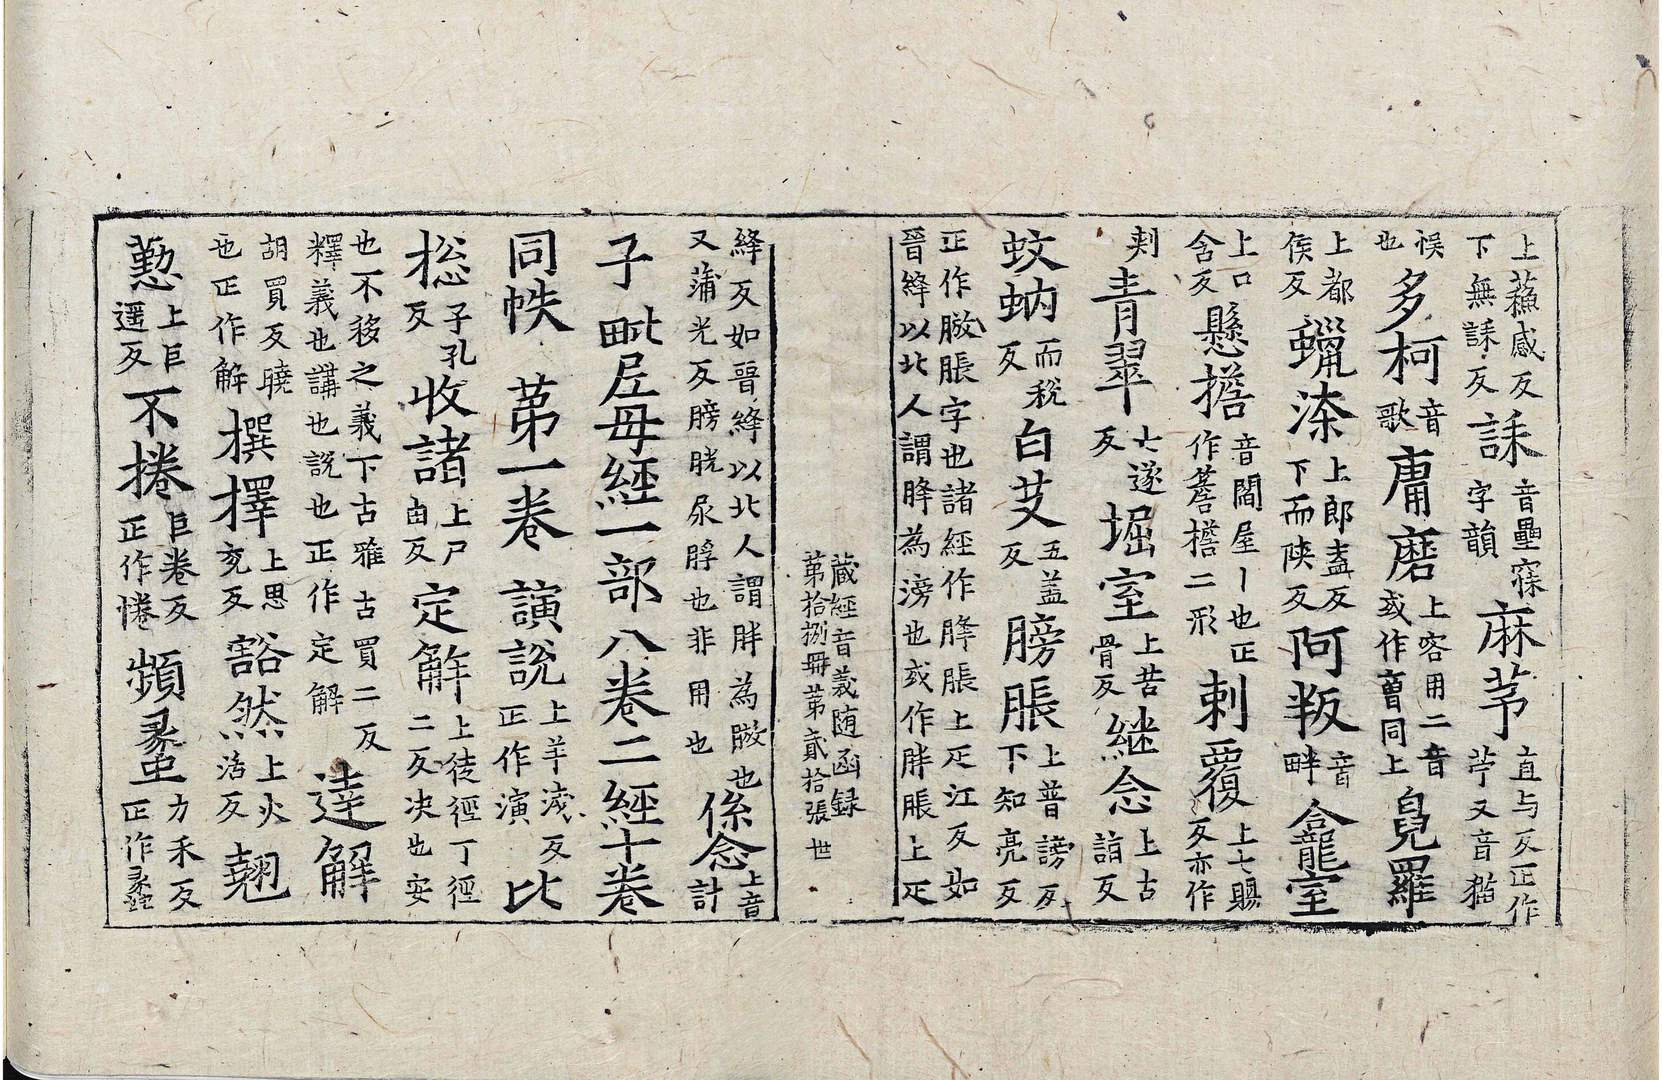 上蘓感反下無誄反誄音壘寐字韻麻芧直与反正作苧又音猫
悞也多柯音歌庯磨上容用二音或作𩫏同上皃羅
上都侯反䗶漆上郎盍反下而陕反阿叛音畔龕室
上口含反懸櫩音閻屋丨也正作簷櫩二形刺覆上七賜反亦作
刾青翠七遂反堀室上苦骨反継念上古詣反
蚊蚋而稅反白艾五盖反膀脹上普謗反下知亮反
正作䐺脹字也諸經作胮脹上疋江反如晉絳以北人謂胮為滂也或作胖脹上疋
蔵經音義随函録第拾捌冊第貳拾張 世
絳反如晉絳以北人謂胖為䐺也又蒲光反膀胱尿脬也非用也係念上音計
子 毗尼母經一部八卷二經十卷
同帙 第一卷 演說上羊淺反正作演比
捴子孔反收諸上尸由反定解上徒徑丁徑二反决也安
也不移之義下古雅古買二反釋義也講也說也正作定解達解
胡買反曉也正作解撰擇上思兖反豁然上火活反翹
懃上巨遥反不捲巨卷反正作惓頻蠡力禾反正作蠡